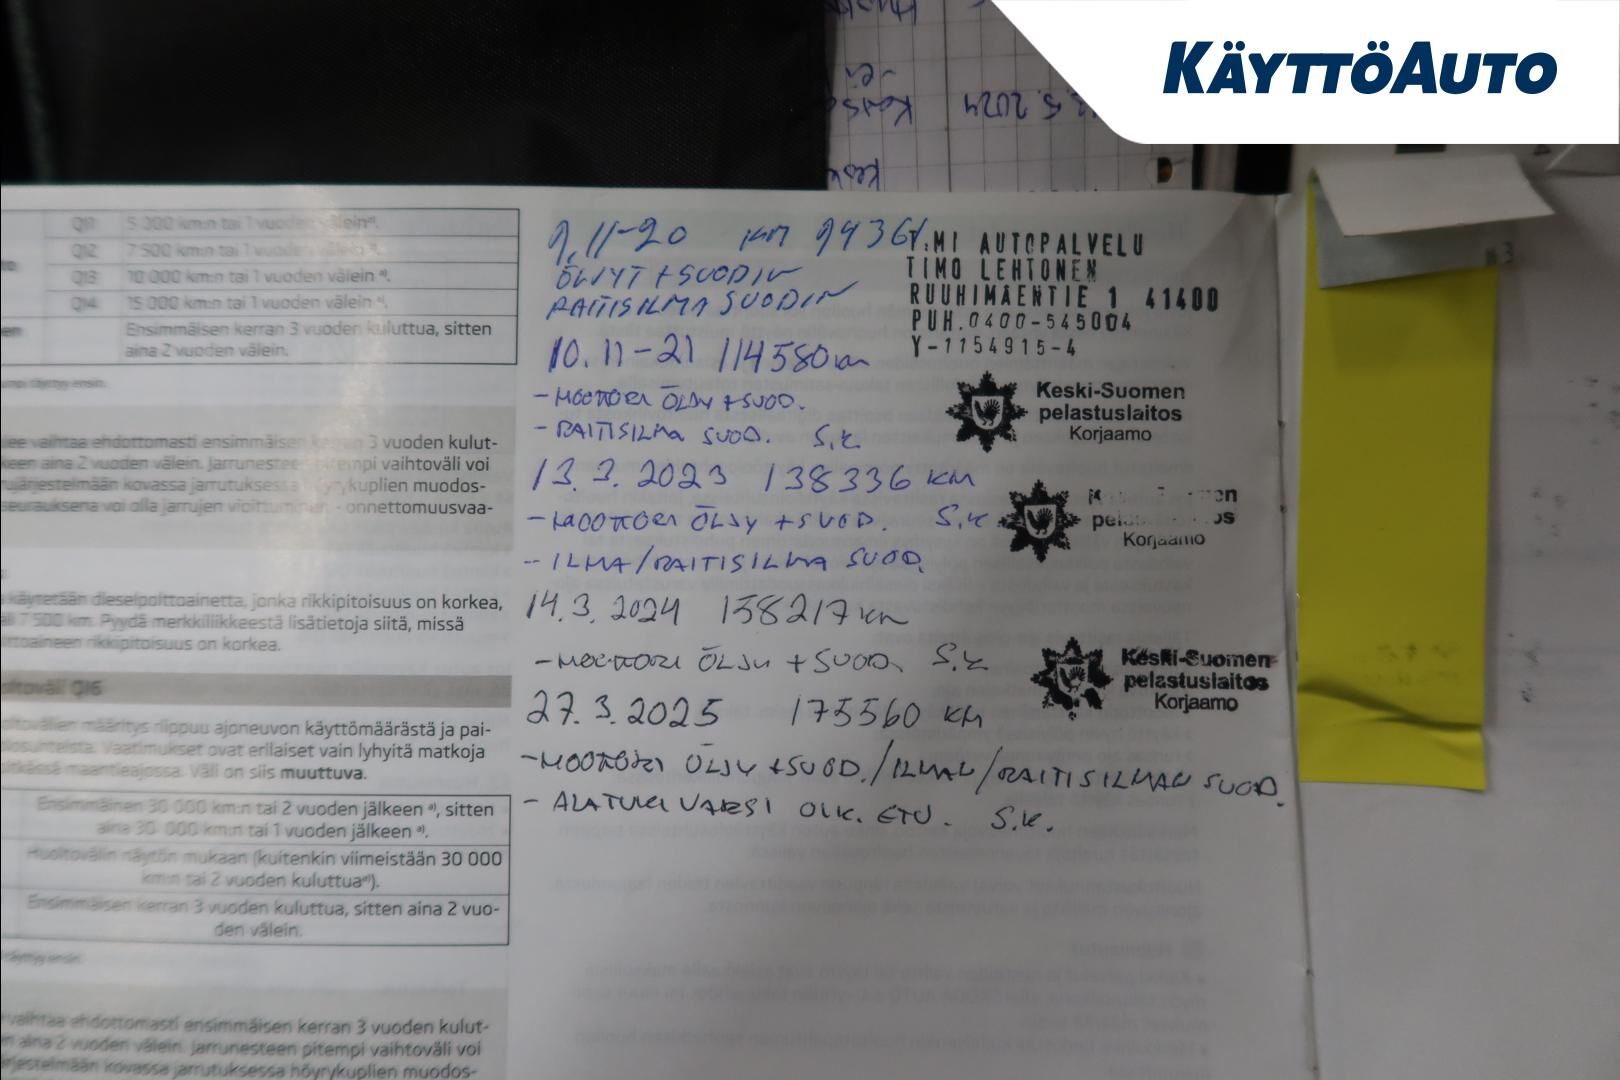 KÄYTTÖAUTO
2024
Q11 5 000 km:n tai 1 vuoden välein ᵃ⁾.
Q12 7 500 km:n tai 1 vuoden välein ᵃ⁾.
Q13 10 000 km:n tai 1 vuoden välein ᵃ⁾.
Q14 15 000 km:n tai 1 vuoden välein ᵃ⁾.
Ensimmäisen kerran 3 vuoden kuluttua, sitten
aina 2 vuoden välein.
täyttyy ensin.
vaihtaa ehdottomasti ensimmäisen kerran 3 vuoden kulut-
aina 2 vuoden välein. Jarrunesteen pitempi vaihtoväli voi
kovassa jarrutuksessa höyrykuplien muodos-
seurauksena voi olla jarrujen vioittuminen - onnettomuusvaa-
käytetään dieselpolttoainetta, jonka rikkipitoisuus on korkea,
7 500 km. Pyydä merkkiliikkeestä lisätietoja siitä, missä
rikkipitoisuus on korkea.
QI6
määritys riippuu ajoneuvon käyttömäärästä ja pai-
Vaatimukset ovat erilaiset vain lyhyitä matkoja
maantieajossa. Väli on siis muuttuva.
Ensimmäinen 30 000 km:n tai 2 vuoden jälkeen ᵃ⁾, sitten
aina 30 000 km:n tai 1 vuoden jälkeen ᵃ⁾.
Huoltovälin näytön mukaan (kuitenkin viimeistään 30 000
km:n tai 2 vuoden kuluttua ᵃ⁾).
Ensimmäisen kerran 3 vuoden kuluttua, sitten aina 2 vuo-
den välein.
täyttyy ensin.
vaihtaa ehdottomasti ensimmäisen kerran 3 vuoden kulut-
aina 2 vuoden välein. Jarrunesteen pitempi vaihtoväli voi
kovassa jarrutuksessa höyrykuplien muodos-
9.11-20 KM 94361
ÖLJYT + SUODIN
RAITISILMA SUODIN
T.MI AUTOPALVELU
TIMO LEHTONEN
RUUHIMÄENTIE 1 41400
PUH.0400-545004
Y-1154915-4
10.11-21 114580 km
- MOOTTORI ÖLJY + SUOD.
- RAITISILMA SUOD. S.K
Keski-Suomen
pelastuslaitos
Korjaamo
13.3.2023 138336 KM
- MOOTTORI ÖLJY + SUOD. S.K
- ILMA/RAITISILMA SUOD.
Keski-Suomen
pelastuslaitos
Korjaamo
14.3.2024 158217 km
- MOOTTORI ÖLJY + SUOD. S.K
Keski-Suomen
pelastuslaitos
Korjaamo
27.3.2025 175560 KM
- MOOTTORI ÖLJY + SUOD./ILMAN/RAITISILMAN SUOD.
- ALATUKI VARSI OIK. ETU. S.K.